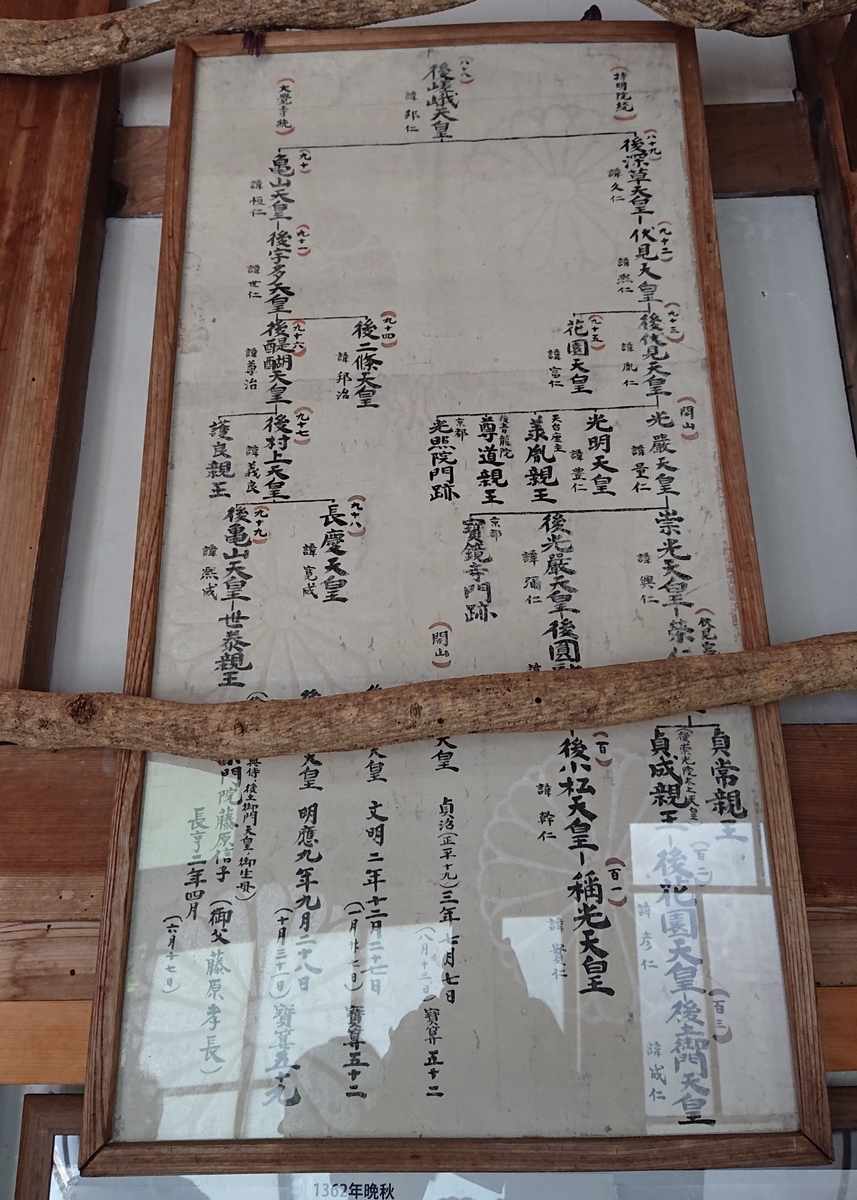 (八十八)
後嵯峨天皇
諱 邦仁
(持明院統)
(八十九)
後深草天皇
諱 久仁
(九十二)
伏見天皇
諱 熙仁
(九十三)
後伏見天皇
諱 胤仁
(九十五)
花園天皇
諱 富仁
(開山)
光嚴天皇
諱 量仁
光明天皇
諱 豊仁
天台座主
義胤親王
後青龍院
尊道親王
京都
光照院門跡
崇光天皇
諱 興仁
後光嚴天皇
諱 彌仁
京都
寶鏡寺門跡
榮仁
後圓
貞常親王
(後崇光院太上天皇)
貞成親王
(百二)
後花園天皇
諱 彦仁
(百三)
後土御門天皇
諱 成仁
(百)
後小松天皇
諱 幹仁
(百一)
稱光天皇
諱 實仁
(大覺寺統)
(九十)
亀山天皇
諱 恒仁
(九十一)
後宇多天皇
諱 世仁
(九十四)
後二條天皇
諱 邦治
(九十六)
後醍醐天皇
諱 尊治
(九十七)
後村上天皇
諱 義良
護良親王
(九十八)
長慶天皇
諱 寛成
(九十九)
後亀山天皇
諱 熙成
世泰親王
(開山)
天皇 貞治(正平十九)三年七月七日 寶算五十二
(八月十三日)
天皇 文明二年十二月二十七日 寶算五十二
(一月廿七日)
天皇 明應九年九月二十八日 寶算五十九
(十月三十一日)
典侍、後土御門天皇、御生母)
門院藤原信子 (御父 藤原孝長)
長亨二年四月
(六月十七日)
1362年晩秋